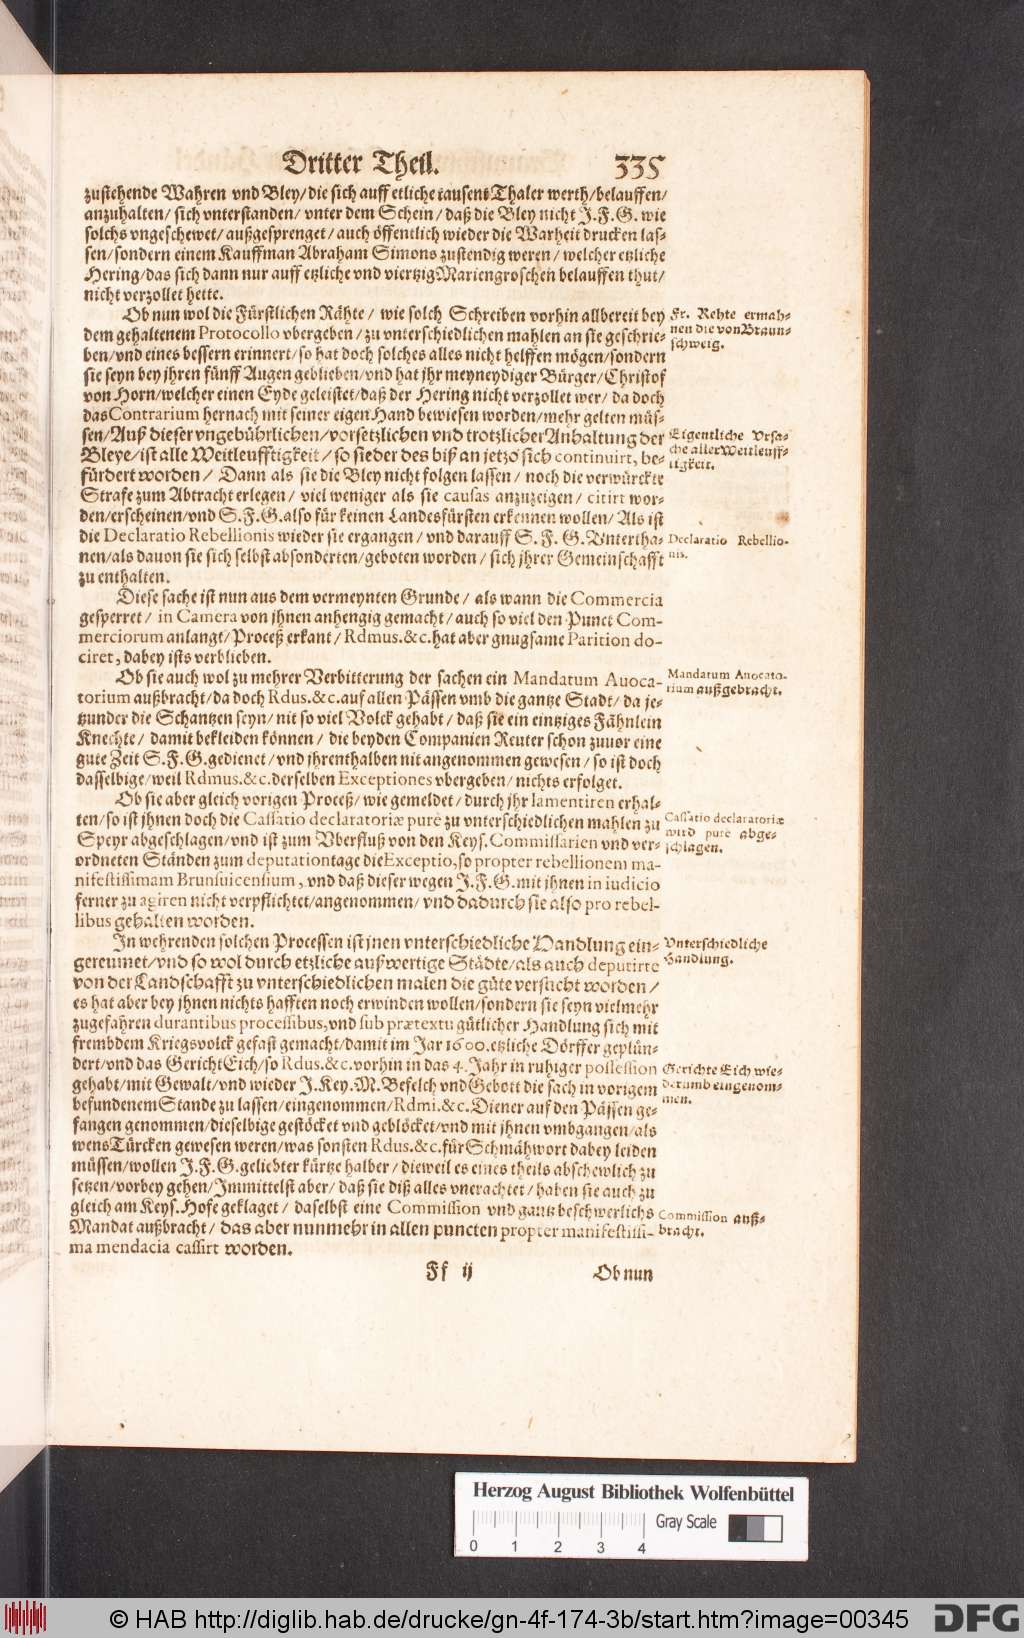 Dritter Theil. 335
zustehende Wahren vnd Bley/die sich auff etliche tausent Thaler werth/belauffen/
anzuhalten/ sich vnterstanden/ vnter dem Schein/ daß die Bley nicht J.F.G. wie
solchs vngeschewet/ außgesprenget/ auch öffentlich wieder die Warheit drucken las-
sen/sondern einem Kauffman Abraham Simons zustendig weren/ welcher etzliche
Hering/das sich dann nur auff etzliche vnd viertzig Mariengroschen belauffen thut/
nicht verzollet hette.
Ob nun wol die Fürstlichen Rähte/ wie solch Schreiben vorhin allbereit bey
dem gehaltenem Protocollo vbergeben/ zu vnterschiedlichen mahlen an sie geschrie-
ben/vnd eines bessern erinnert/so hat doch solches alles nicht helffen mögen/sondern
sie seyn bey jhren fünff Augen geblieben/vnd hat jhr meyneydiger Bürger/Christof
von Horn/welcher einen Eyde geleistet/daß der Hering nicht verzollet wer/ da doch
das Contrarium hernach mit seiner eigen Hand bewiesen worden/mehr gelten müs-
sen/Auß dieser vngebührlichen/vorsetzlichen vnd trotzlicher Anhaltung der
Bleye/ist alle Weitleufftigkeit/ so sieder des biß an jetzo sich continuirt, be-
fürdert worden/ Dann als sie die Bley nicht folgen lassen/ noch die verwürckte
Strafe zum Abtracht erlegen/ viel weniger als sie causas anzuzeigen/ citirt wor-
den/erscheinen/vnd S.F.G.also für keinen Landesfürsten erkennen wollen/ Als ist
die Declaratio Rebellionis wieder sie ergangen/ vnd darauff S. F. G. Vntertha-
nen/als dauon sie sich selbst absonderten/geboten worden/ sich jhrer Gemeinschafft
zu enthalten.
Diese sache ist nun aus dem vermeynten Grunde/ als wann die Commercia
gesperret/ in Camera von jhnen anhengig gemacht/ auch so viel den Punct Com-
merciorum anlangt/ Proceß erkant/ Rdmus.&c. hat aber gnugsame Parition do-
ciret, dabey ists verblieben.
Ob sie auch wol zu mehrer Verbitterung der sachen ein Mandatum Auoca-
torium außbracht/da doch Rdus.&c.auf allen Pässen vmb die gantze Stadt/ da je-
tzunder die Schantzen seyn/ nit so viel Volck gehabt/ daß sie ein eintziges Fähnlein
Knechte/ damit bekleiden können/ die beyden Companien Reuter schon zuuor eine
gute Zeit S.F.G.gedienet/vnd jhrenthalben nit angenommen gewesen/ so ist doch
dasselbige/weil Rdmus.&c.derselben Exceptiones vbergeben/ nichts erfolget.
Ob sie aber gleich vorigen Proceß/ wie gemeldet/ durch jhr lamentiren erhal-
ten/so ist jhnen doch die Cassatio declaratoriæ purè zu vnterschiedlichen mahlen zu
Speyr abgeschlagen/vnd ist zum Vberfluß von den Keys. Commissarien vnd ver-
ordneten Ständen zum deputationtage die Exceptio, so propter rebellionem ma-
nifestissimam Brunsuicensium, vnd daß dieser wegen J.F.G.mit jhnen in iudicio
ferner zu agiren nicht verpflichtet/angenommen/ vnd dadurch sie also pro rebel-
libus gehalten worden.
In wehrenden solchen Processen ist jnen vnterschiedliche Handlung ein-
gereumet/vnd so wol durch etzliche außwertige Städte/als auch deputirte
von der Landschafft zu vnterschiedlichen malen die güte versucht worden/
es hat aber bey jhnen nichts hafften noch erwinden wollen/sondern sie seyn vielmehr
zugefahren durantibus processibus, vnd sub prætextu gütlicher Handlung sich mit
frembdem Kriegsvolck gefast gemacht/damit im Jar 1600.etzliche Dörffer geplün-
dert/vnd das Gericht Eich/so Rdus.&c.vorhin in das 4.Jahr in ruhiger possession
gehabt/mit Gewalt/vnd wieder J.Key.M.Befelch vnd Gebott die sach in vorigem
befundenem Stande zu lassen/eingenommen/Rdmi.&c.Diener auf den Pässen ge-
fangen genommen/dieselbige gestöcket vnd geblöcket/vnd mit jhnen vmbgangen/als
wens Türcken gewesen weren/was sonsten Rdus.&c.für Schmähwort dabey leiden
müssen/wollen J.F.G.geliebter kürtze halber/ dieweil es eines theils abschewlich zu
setzen/vorbey gehen/Immittelst aber/ daß sie diß alles vnerachtet/ haben sie auch zu
gleich am Keys.Hofe geklaget/ daselbst eine Commission vnd gantz beschwerlichs
Mandat außbracht/ das aber nunmehr in allen puncten propter manifestissi-
ma mendacia cassirt worden.
Ff ij Ob nun
Fr. Rehte ermah-
nen die von Braun-
schweig.
Eigentliche Vrsa-
che aller Weitleuff-
tigkeit.
Declaratio Rebellio-
nis.
Mandatum Auocato-
rium außgebracht.
Cassatio declaratoriæ
wird purè abge-
schlagen.
Vnterschiedliche
Handlung.
Gerichte Eich wie-
derumb eingenom-
men.
Commission auß-
bracht.
Herzog August Bibliothek Wolfenbüttel
Gray Scale
0 1 2 3 4
© HAB http://diglib.hab.de/drucke/gn-4f-174-3b/start.htm?image=00345
DFG